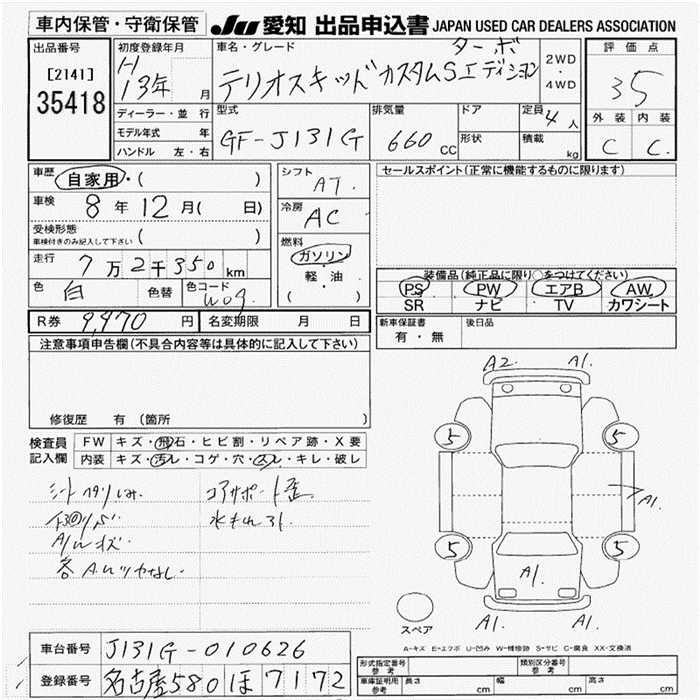 車内保管・守衛保管 JU 愛知 出品申込書 JAPAN USED CAR DEALERS ASSOCIATION
出品番号
[2141]
35418
初度登録年月
H 13年 月
車名・グレード
テリオスキッド カスタムSエディション
ターボ
2WD・4WD
評価点
3.5
ディーラー・並行
モデル年式 年
ハンドル 左・右
型式
GF-J131G
排気量
660 CC
ドア
形状
定員 4 人
積載 kg
外装 内装
C C
車歴 自家用・( )
車検 8年12月( 日)
受検形態
車検付きのみ記入して下さい ( )
走行 7万2千350 km
色 白 色替 色コード W09
シフト AT
冷房 AC
燃料
ガソリン
軽・油
( )
セールスポイント(正常に機能するものに限ります)
装備品(純正品に限り○をつけてください)
PS PW エアB AW
SR ナビ TV カワシート
R券 9,970 円 名変期限 月 日
新車保証書
有・無
後日品
注意事項申告欄(不具合内容等は具体的に記入して下さい)
修復歴 有(箇所 )
検査員記入欄
FW キズ・飛石・ヒビ割・リペア跡・X要
内装 キズ・汚レ・コゲ・穴・スレ・キレ・破レ
シートヘタリ
コアサポート歪
A/Wキズ
A2. A1.
5 5
A1.
5 5
A1.
A1. A1.
スペア
A-キズ E-エクボ U-凹み W-補修跡 S-サビ C-腐食 XX-交換済
車台番号 J131G-010626
登録番号 名古屋580 ほ 7172
形式指定番号 参考
類別区分番号 参考
車庫証明用 参考 長さ cm 幅 cm 高さ cm